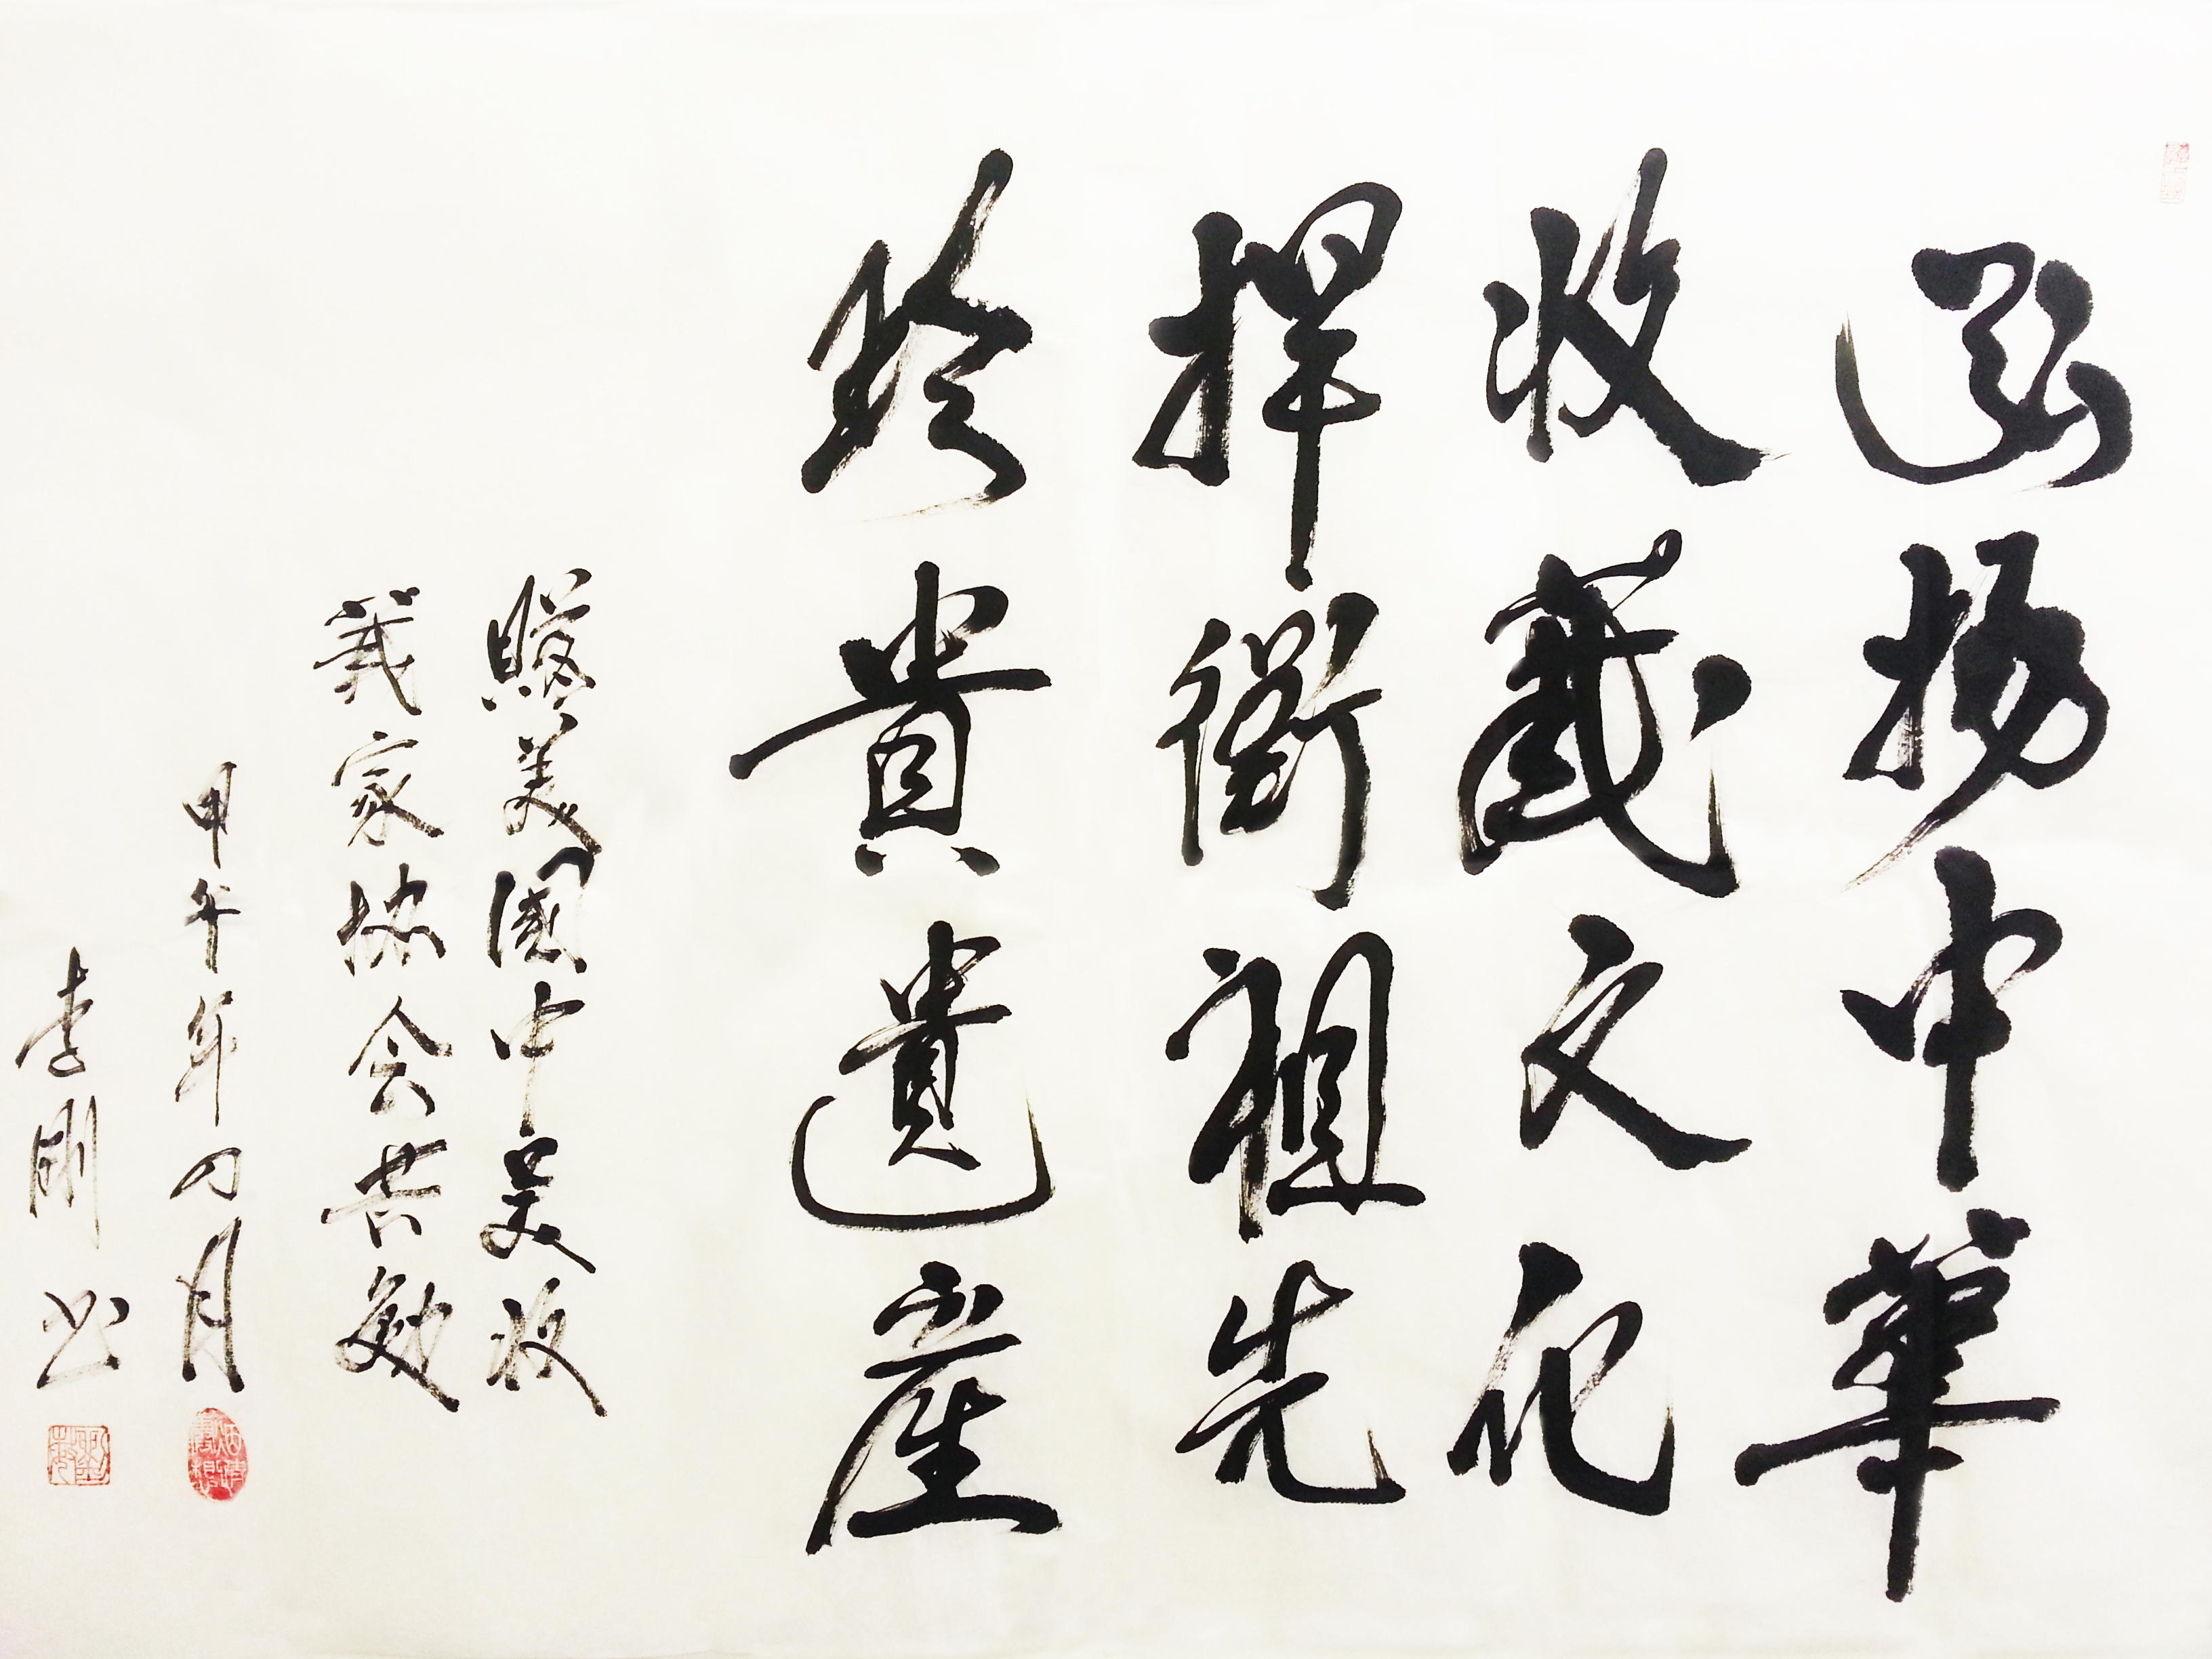 弘揚中華
收藏文化
捍衛祖先
珍貴遺產
贈美國中美收
藏家協会共勉
甲午年月
李剛书